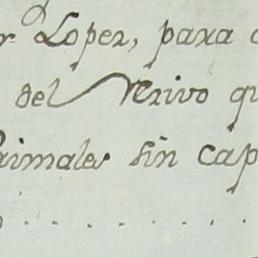 r Lopez, para
del Verivo qu
rimales sin Cap